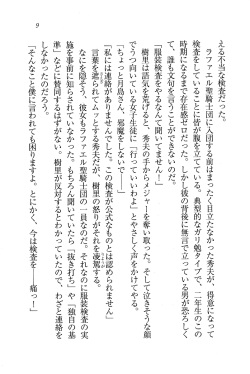 9
える不当な検査だった。
ラファエル聖騎士団に入団する前はまったく目立たなかった秀夫が、得意になって
検査をしていることに皆が服を立てていた。典型的なガリ勉タイプで、二年生のこの
時期になるまで存在感ゼロだった。しかし彼の背後に無言で立っている男が恐ろしく
て、誰も文句を言うことができないのだ。
「服装検査をやるなんて聞いてません！」
樹里は語気を荒げると、秀夫の手からメジャーを奪い取った。そして泣きそうな顔
でうつ向いている女子生徒に「行っていいわよ」とやさしく声をかけてやる。
「ちょっと月島さん、邪魔をしないで――」
「私には連絡がありませんでした。この検査が公式なものとは認められません」
言葉を遮られてムッとする秀夫だが、樹里の迫力はそれを凌駕する。
連絡がなさそうが、彼女もラファエル聖騎士団の一員なのだ。それなのに服装検査の実
施を事前に知らされていなかった。もちろん聞いていたら「抜き打ち」や「独自の基
準」などに賛同するはずがない。樹里が反対するとわかっていたので、わざと連絡を
しなかったのだろう。
「そんなこと僕に言われても困りますよ。とにかく、今は検査を――痛っ！」